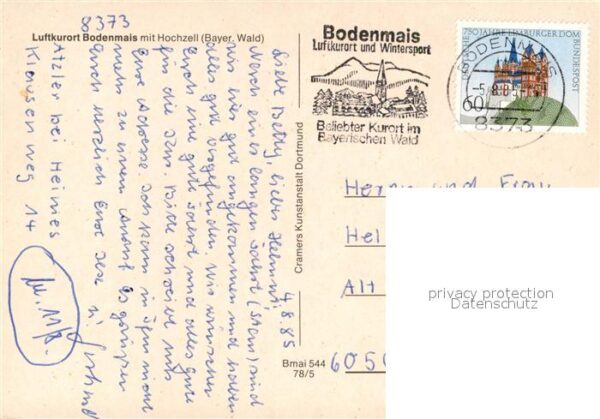 8373
Luftkurort Bodenmais mit Hochzell (Bayer. Wald)
Bodenmais
Luftkurort und Wintersport
Beliebter Kurort im
Bayerischen Wald
750 JAHRE LIMBURGER DOM
DEUTSCHE BUNDESPOST
60
BODENMAIS
8373
4.8.85
Liebe Betty, lieber Helmut!
Nach einer langen Fahrt (Stau) sind
wir gut angekommen und haben
alles gut vorgefunden. Wir wünschen
Euch eine gute Fahrt und alles gute
für die Kur. Bitte schreibt uns
Eure Adresse. Ich kann in Ihm nicht
mehr zu
Euch herzlich Eure Ilse
Atzler bei Heimes
Klausenweg 14
Cramers Kunstanstalt Dortmund
Bmai 544
78/5
Herrn und Frau
Hel
Alt
6050
privacy protection
Datenschutz